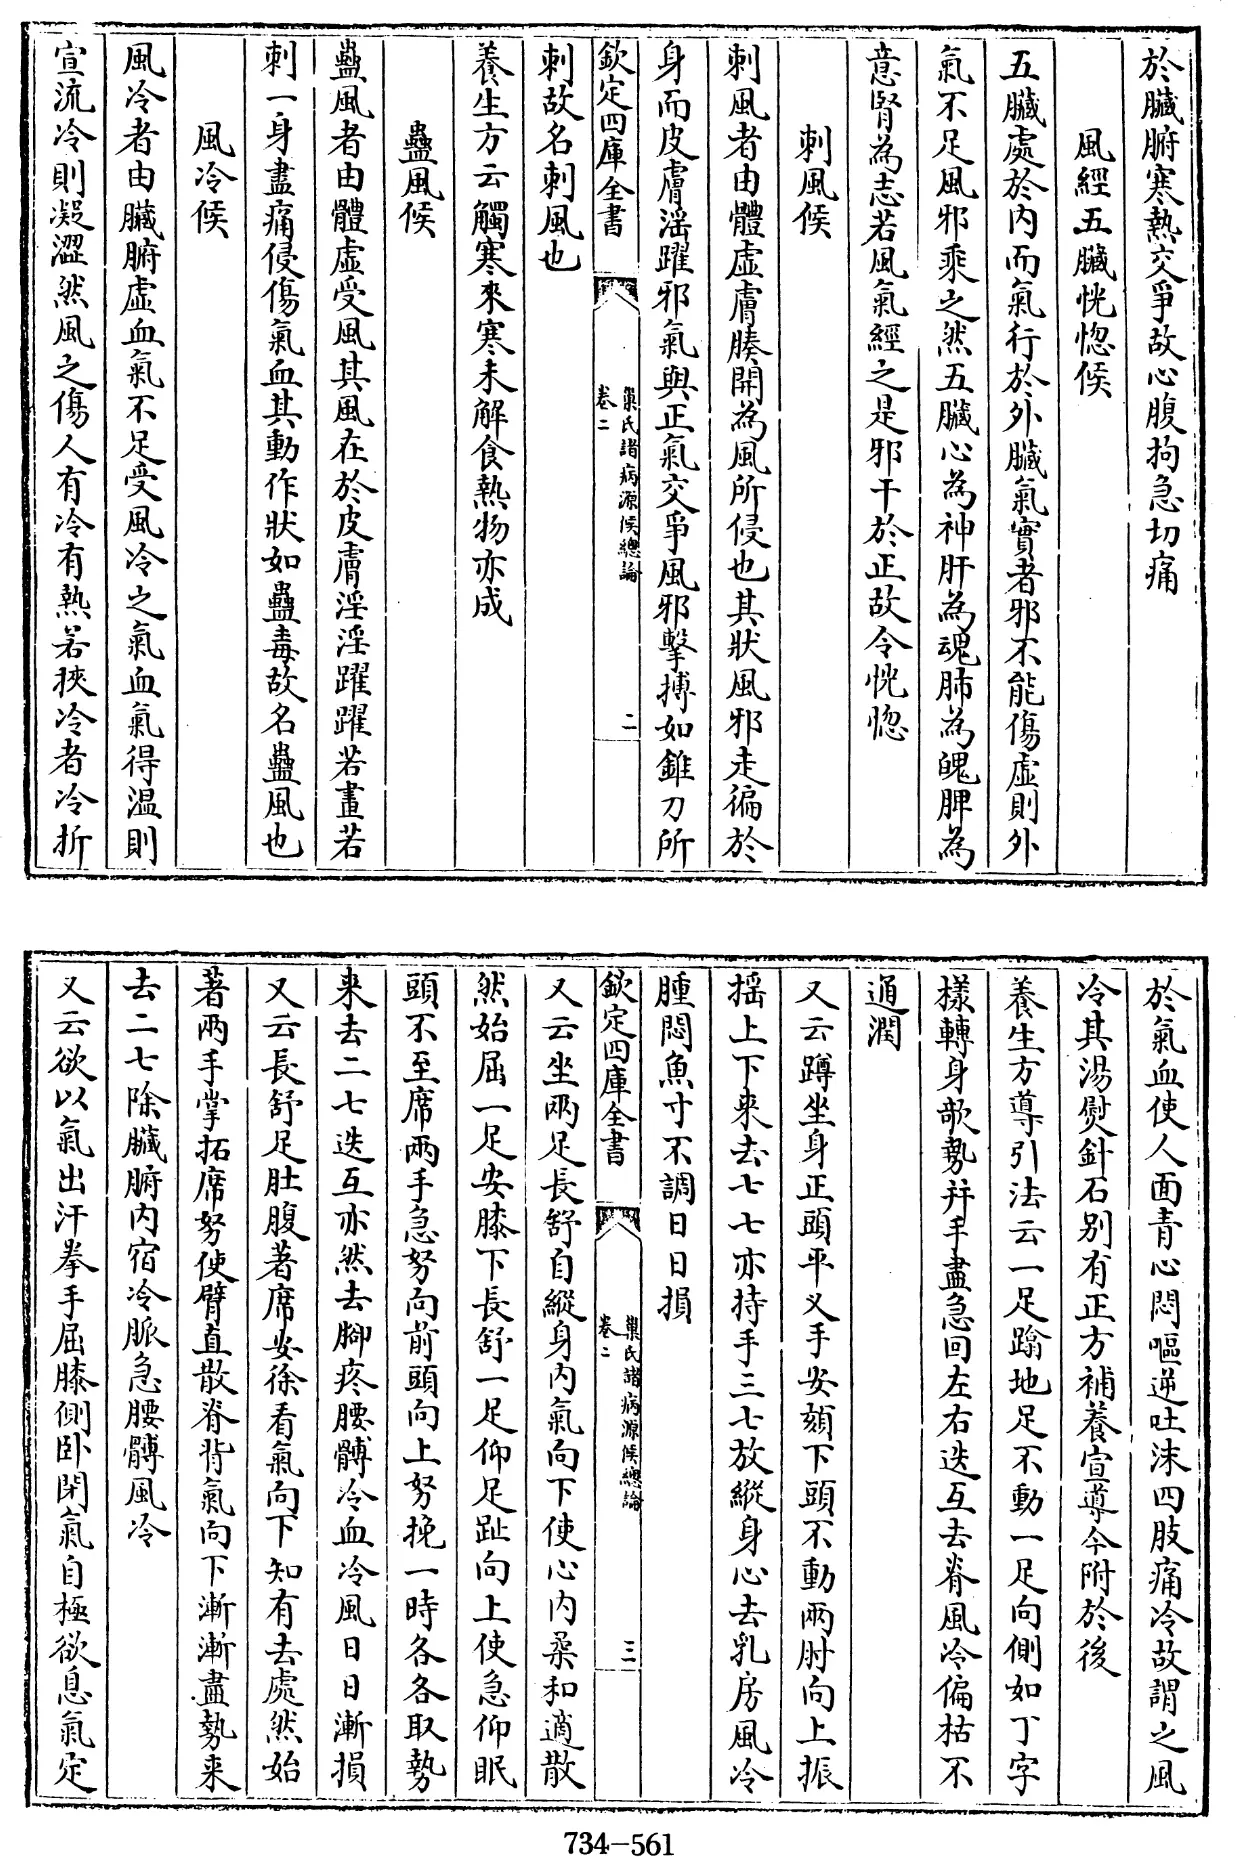 於臟腑寒熱交爭故心腹拘急切痛
風經五臟恍惚候
五臟處於内而氣行於外臟氣實者邪不能傷虛則外
氣不足風邪乘之然五臟心為神肝為魂肺為魄脾為
意腎為志若風氣經之是邪干於正故令恍惚
刺風候
刺風者由體虛膚腠開為風所侵也其狀風邪走徧於
身而皮膚淫躍邪氣與正氣交爭風邪擊搏如錐刀所
欽定四庫全書
巢氏諸病源候總論
卷二
二
刺故名刺風也
養生方云觸寒來寒未解食熱物亦成
蠱風候
蠱風者由體虛受風其風在於皮膚淫淫躍躍若畫若
刺一身盡痛侵傷氣血其動作狀如蠱毒故名蠱風也
風冷候
風冷者由臟腑虛血氣不足受風冷之氣血氣得温則
宣流冷則凝澀然風之傷人有冷有熱若挾冷者冷折
於氣血使人面青心悶嘔逆吐沫四肢痛冷故謂之風
冷其湯熨針石别有正方補養宣導今附於後
養生方導引法云一足踰地足不動一足向側如丁字
樣轉身欹勢并手盡急回左右迭互去脊風冷偏枯不
通潤
又云蹲坐身正頭平叉手安頦下頭不動兩肘向上振
揺上下来去七七亦持手三七放縱身心去乳房風冷
腫悶魚寸不調日日損
欽定四庫全書
巢氏諸病源候總論
卷二
三
又云坐兩足長舒自縱身内氣向下使心内柔和適散
然始屈一足安膝下長舒一足仰足趾向上使急仰眠
頭不至席兩手急努向前頭向上努挽一時各各取勢
来去二七迭互亦然去腳疼腰髆冷血冷風日日漸損
又云長舒足肚腹著席安徐看氣向下知有去處然始
著兩手掌拓席努使臂直散脊背氣向下漸漸盡勢来
去二七除臟腑内宿冷脈急腰髆風冷
又云欲以氣出汗拳手屈膝側卧閉氣自極欲息氣定
734-561